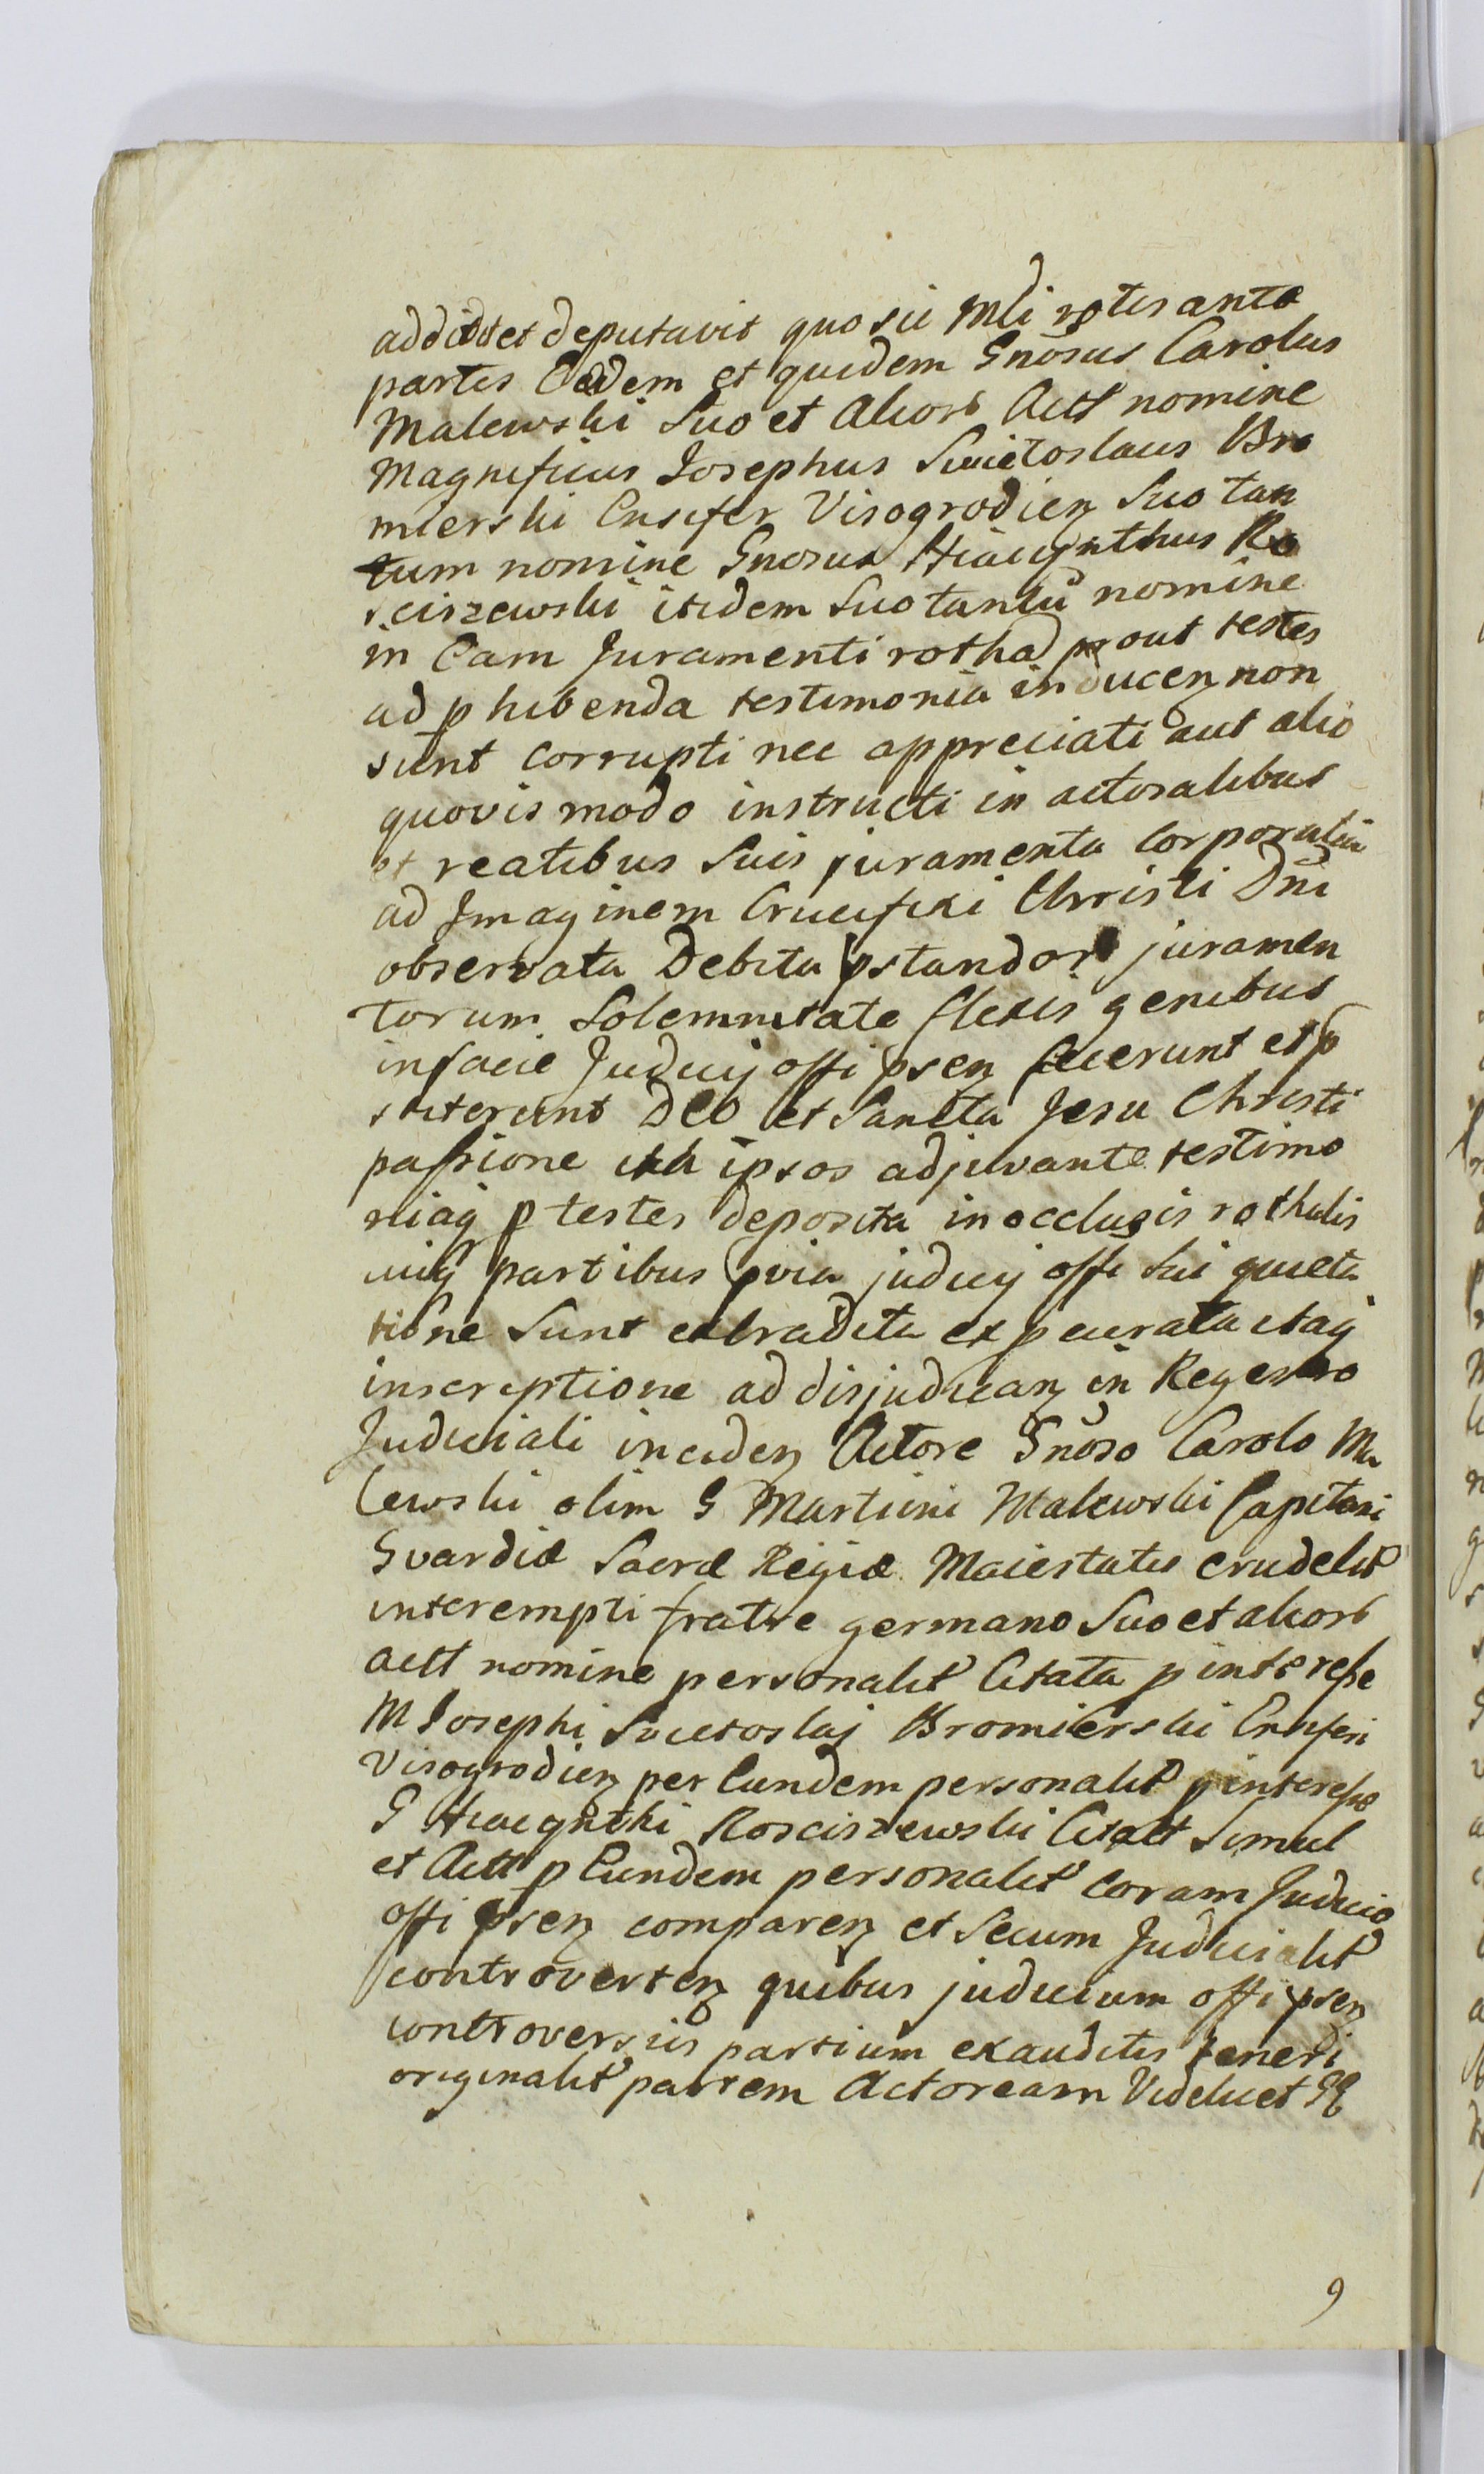 addidit et deputavit quo sic Mdi rotes ante
partes Eædem et quidem Gnosus Carolus
Malewski Suo et Aliorb Actt nomine
Magnificus Josephus Swietoslaus Bro
mierski Ensifer Visogrodien Suo tan
tum nomine Gnosus Hiacynthus Ro
sciszewski itidem Suo tantu nomine
in Eam Juramenti rotha prout testes
ad phibenda testimonia inducen non
sunt Corrupti nec appreciati aut alio
quovis modo instructi in actoralibus
et reatibus Suis juramenta Corporalia
ad Imaginem Crucifixi Christi Dni
observata Debita pstandor juramen
torum Solemnitate flexis genibus
in facie Judicij offi psen fecerunt et p
stiterunt DEO et Sancta Jesu Christi
passione ita ipsos adjuvante testimo
niaq p testes deposita in occlusis rothulis
uiq partibus pvia judicij offi Sui quieta
tione Sunt extradita ex p curata itaq
inscriptione ad disjudican in Regestro
Judiciali inciden Actore Gnoso Carolo Ma
lewski olim G Martini Malewski Capitani
Gvardiæ Sacræ Regiæ Maiestatis crudelit
interempti fratre germano Suo et aliorb
actt nomine personalit Citata p interesse
M Josephi Swietoslaj Bromierski Ensiferi
Visogrodien per Eundem personalit p interesse
G Hiacynthi Rosciszewski Citatt Simul
et Actt p Eundem personalit Coram Judicio
offi psen comparen et Secum Judicialit
controverten quibus judicium offi psen
controversiis partium exauditis teneri
originalit partem Actoream Videlicet GG
9